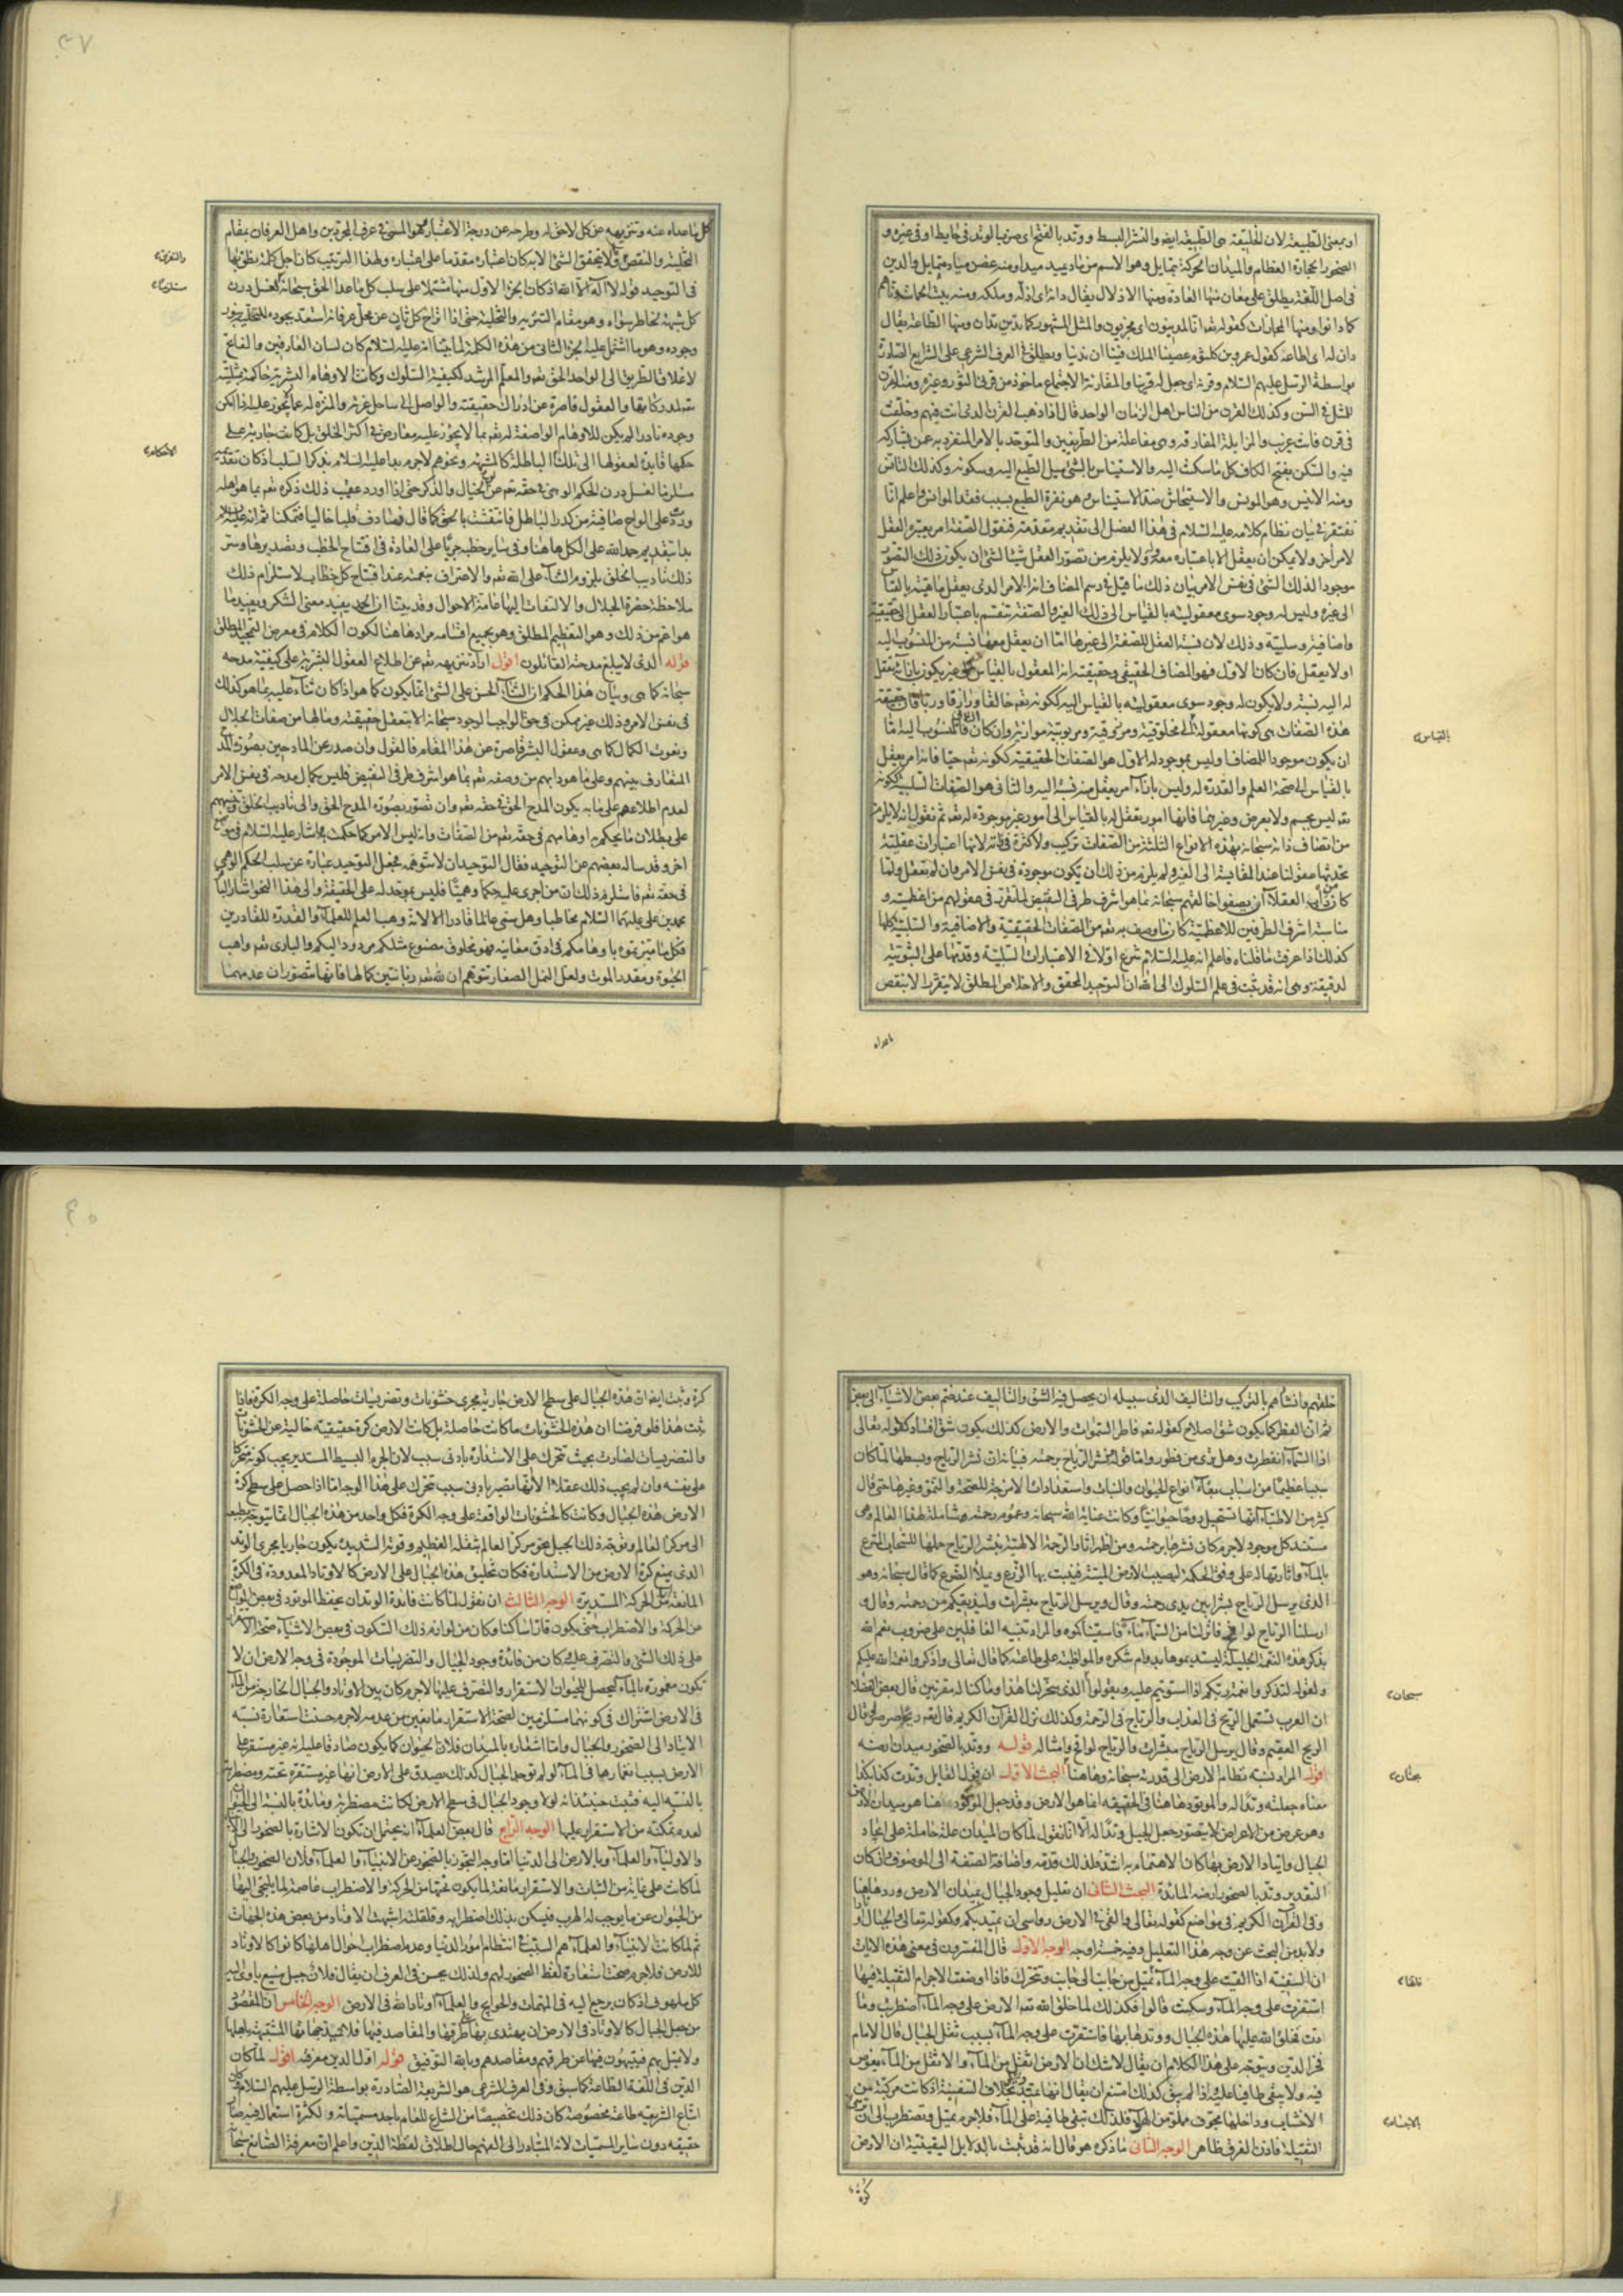 او بمعنى الطبيعة لان الخليقة هى الطبيعة ايضا والنشر البسط ووتد بالفتح اى ضرب الوتد فى حايط او فى غيره و
الصخور الحجارة العظام والميدان الحركة بتمايل وهو الاسم من ماد يميد ميدا ومنه غصن مياد متمايل والدين
فى اصل اللغة يطلق على معان منها العادة ومنها الاذلال يقال دانه اى اذله وملكه ومنه بيت الحماسة دناهم
كما دانوا ومنها المجازات كقوله تعم انا لمدينون اى مجزيون والمثل المشهور كما تدين تدان ومنها الطاعة يقال
دان له اى اطاعه كقول عمرو بن كلثوم عصينا الملك فينا ان ندينا ويطلق فى العرف الشرعى على الشرايع الصادرة
بواسطة الرسل عليهم السلام وقرنه اى جعل له قرينا والمقارنة الاجتماع ماخوذ من قرن الثور وغيره ومنه القرن
للمثل فى السن وكذلك القرن من الناس اهل الزمان الواحد قال اذا ذهب القرن الذى انت فيهم وخلفت
فى قرن فانت غريب والمزايلة المفارقة وهى مفاعلة من الطرفين والمتوحد بالامر المنفرد به عمن يشاركه
فيه والسكن بفتح الكاف كل ما سكنت اليه والاستيناس بالشئ ميل الطبع اليه وسكونه وكذلك التانس
ومنه الانيس وهو المونس والاستيحاش ضد الاستيناس وهو نفرة الطبع بسبب فقد الموانس واعلم انا
نفتقر فى بيان نظام كلامه عليه السلام فى هذا الفصل الى تقديم مقدمة فنقول الصفة امر يعتبره العقل
لامر آخر ولا يمكن ان يعقل الا باعتباره معه ولا يلزم من تصور العقل شيئا لشئ ان يكون ذلك التصور
موجودا لذلك الشئ فى نفس الامر بيان ذلك ما قيل فى رسم المضاف انه الامر الذى يعقل ماهيته بالقياس
الى غيره وليس له وجود سوى معقوليته بالقياس الى ذلك الغير والصفة تنقسم باعتبار العقل الى حقيقية
واضافية وسلبية وذلك لان نسبة العقل للصفة الى غيرها اما ان يعقل معها نسبة من المنسوب اليه
او لا يعقل فان كان الاول فهو المضاف الحقيقى وحقيقته انه المعقول بالقياس الى غير يكون بازائه يعقل
له اليه نسبة ولا يكون له وجود سوى معقوليته بالقياس اليه ككونه تعم خالقا ورازقا وربا فان حقيقة
هذه الصفات هى كونها معقولة الى مخلوقية ومرزوقية ومربوبية موازية وان كان الثانى فالمنسوب اليه اما
ان يكون موجودا للمضاف او ليس بموجود له الاول هو الصفات الحقيقية ككونه تعم حيا فانه امر يعقل
بالقياس الى صحة العلم والقدرة له وليس بازائه امر يعقل منه نسبة اليه والثانى هو الصفات السلبية ككونه
تعم ليس بجسم ولا بعرض وغيرهما فانها امور تعقل له بالقياس الى امور غير موجودة له تعم ثم نقول انه لا يلزم
من اتصاف ذاته سبحانه بهذه الانواع الثلثة من الصفات تركيب ولا كثرة فى ذاته لانها اعتبارات عقلية
تحدثها عقولنا عند المقايسة الى الغير ولم يلزم من ذلك ان يكون موجودة فى نفس الامر وان لم تعقل ولما
كان داب العقلاء ان يصفوا خالقهم سبحانه بما هو اشرف طرفى النقيض لما تقرر فى عقولهم من اعظميته و
مناسبة اشرف الطرفين للاعظمية كان ما وصف به تعم من الصفات الحقيقية والاضافية والسلبية كلها
كذلك اذا عرفت ما قلناه فاعلم انه عليه السلام شرع اولا فى الاعتبارات السلبية وقدمها على الثبوتية
لدقيقة وهى انه قد ثبت فى علم السلوك الى الله ان التوحيد المحقق والاخلاص المطلق لا يتقرر الا بنقض
بالقياس
ماعداه
٣٧
كل ما عداه عنه وتنزيهه عن كل لاحق له وطرحه عن درجة الاعتبار وهو المسمى فى عرف المجردين واهل العرفان بمقام
التخلية والنقض والا يتحقق الشئ الا به كان اعتباره مقدما على اعتباره ولهذا الترتيب كان اجل كلمة نطق بها
فى التوحيد قوله لا اله الا الله اذ كان الجزء الاول منها مشتملا على سلب كل ما عدا الحق سبحانه لغسل درن
كل شبهة لخاطر سواه وهو مقام التنزيه والتخلية حتى اذا انزاح كل ثان عن محل عرفانه استعد بجوده للتحلية بنور
وجوده وهو ما اشتمل عليه الجزء الثانى من هذه الكلمة لما بينا انه عليه السلام كان لسان العارفين والفاتح
لاغلاق الطريق الى الواحد الحق تعم والمعلم المرشد لكيفية السلوك وكانت الاوهام البشرية حاكمة بمثليته
تعم لمدركاتها والعقول قاصرة عن ادراك حقيقته والواصل الى ساحل عزته والمنزه له عما يجوز عليه اذا امكن
وجوده نادرا لم يكن للاوهام الواصفة له تعم بما لا يجوز عليه معارض فى اكثر الخلق بل كانت جارية على
حكمها قايدة لعقولها الى تلك الباطلة كالمشبهة ونحوهم لا جرم بدا عليه السلام بذكر السلب اذ كان تقديمه
مستلزما لغسل درن الحكم الوهمى فى حقه تعم عن الخيال والذكر حتى اذا اورد عقيب ذلك ذكره تعم بما هو اهله
ورد على الواح صافية من كدر الباطل فانتقشت بالحق كما قال فصادف قلبا خاليا فتمكنا ثم انه عليه السلام
بدا بتقديم حمد الله على الكل هاهنا وفى ساير خطبه جريا على العادة فى افتتاح الخطب وتصديرها وسر
ذلك تاديب الخلق بلزوم الثناء على الله تعم والاعتراف بنعمته عند افتتاح كل خطاب لاستلزام ذلك
ملاحظة حضرة الجلال والالتفات اليها عامة الاحوال وقد بينا ان الحمد يفيد معنى الشكر ويفيد ما
هو اعم من ذلك وهو التعظيم المطلق وهو بجميع اقسامه مراد هاهنا لكون الكلام فى معرض التمجيد المطلق
قوله الذى لا يبلغ مدحته القائلون اقول اراد تنزيهه تعم عن اطلاع العقول البشرية على كيفية مدحه
سبحانه كما هى وبيان هذا الحكم ان الثناء الحسن على الشئ انما يكون كما هو اذا كان ثناء عليه بما هو كذلك
فى نفس الامر وذلك غير ممكن فى حق الواجب الوجود سبحانه الا بتعقل حقيقته وما لها من صفات الجلال
ونعوت الكمال كما هى وعقول البشر قاصرة عن هذا المقام فالقول وان صدر عن المادحين بصورة المدح
المتعارف بينهم وعلى ما هو دابهم من وصفه تعم بما هو اشرف طرفى النقيض فليس بكمال مدحه فى نفس الامر
لعدم اطلاعهم على ما به يكون المدح الحق فى حقه تعم وان تصور بصورة المدح الحق والى تاديب الخلق وتنبيههم
على بطلان ما يحكم به اوهامهم فى حقه تعم من الصفات وانه ليس الامر كما حكمت به اشار عليه السلام فى موضع
آخر وقد ساله بعضهم عن التوحيد فقال التوحيد ان لا تتوهمه فجعل التوحيد عبارة عن سلب الحكم الوهمى
فى حقه تعم فاستلزم ذلك ان من اجرى عليه حكما وهميا فليس بموحد له على الحقيقة والى هذا النحو اشار الباقر
محمد بن على عليهما السلام مخاطبا وهل سمى عالما قادرا الا لانه وهب العلم للعلماء والقدرة للقادرين
فكل ما ميزتموه باوهامكم فى ادق معانيه فهو مخلوق مصنوع مثلكم مردود اليكم والبارى تعم واهب
الحيوة ومقدر الموت ولعل النمل الصغار تتوهم ان لله تعم زبانيتين كما لها فانها تتصور ان عدمهما
والتفريق
الاحكام
٤٠
خلقهم وانشأهم بالتركيب والتاليف الذى سبيله ان يحصل فيه الشق والتاليف عند ضم بعض الاشياء الى بعض
ثم ان الفطر كما يكون شق اصلاح كقوله تعم فاطر السموات والارض كذلك يكون شق افساد كقوله تعالى
اذا السماء انفطرت وهل ترى من فطور واما قوله نشر الرياح برحمته فبيانه ان نشر الرياح وبسطها لما كان
سببا عظيما من اسباب بقاء انواع الحيوان والنبات واستعدادات الامزجة للصحة والنمو وغيرها حتى قال
كثير من الاطباء انها تستحيل روحا حيوانيا وكانت عناية الله سبحانه وعموم رحمته شاملة لهذا العالم وهى
مستند كل موجود لا جرم كان نشرها برحمته ومن اظهر اثار الرحمة الالهية بنشر الرياح حملها للسحاب المترع
بالماء واثارتها له على وفق الحكمة ليصيب الارض الميتة فينبت بها الزرع ويملأ الضرع كما قال سبحانه وهو
الذى يرسل الرياح بشرا بين يدى رحمته وقال ويرسل الرياح مبشرات وليذيقكم من رحمته وقال و
ارسلنا الرياح لواقح فانزلنا من السماء ماء فاسقيناكموه والمراد تنبيه الغافلين على ضروب نعم الله
بذكر هذه النعمة الجليلة ليستديموها بدوام شكره والمواظبة على طاعته كما قال تعالى واذكروا نعمة الله عليكم
ولقوله ثم تذكروا نعمة ربكم اذا استويتم عليه وتقولوا سبحان الذى سخر لنا هذا وما كنا له مقرنين قال بعض الفضلا
ان العرب تستعمل الريح فى العذاب والرياح فى الرحمة وكذلك نزل القرآن الكريم قال تعم بريح صرصر وقال
الريح العقيم وقال يرسل الرياح مبشرات والرياح لواقح وامثاله قوله ووتد بالصخور ميدان ارضه
اقول المراد نسبة نظام الارض الى قدرته سبحانه وهاهنا البحث الاول ان قول القايل وتدت كذا بكذا
معناه جعلته وتدا له والموتود هاهنا فى الحقيقة انما هو الارض وقد جعل الموتود هنا هو ميدان الارض
وهو عرض من الاعراض لا يتصور جعل الجبل وتدا له الا انا نقول لما كان الميدان علة حاملة على ايجاد
الجبال وايتاد الارض بها كان الاهتمام به اشد فلذلك قدمه واضافة الصفة الى الموصوف وان كان
التقدير وتد بالصخور ارضه المائدة البحث الثانى ان تعليل وجود الجبال بميدان الارض ورد هاهنا
وفى القرآن الكريم فى مواضع كقوله تعالى والقى فى الارض رواسى ان تميد بكم وكقوله تعالى والجبال اوتادا
ولا بد من البحث عن وجه هذا التعليل وفيه خمسة اوجه الوجه الاول قال المفسرون فى معنى هذه الايات
ان السفينة اذا القيت على وجه الماء تميل من جانب الى جانب وتتحرك فاذا وضعت الاجرام الثقيلة فيها
استقرت على وجه الماء وسكنت قالوا فكذلك لما خلق الله تعم الارض على وجه الماء اضطربت وما
دت فخلق الله عليها هذه الجبال ووتدها بها فاستقرت على وجه الماء بسبب ثقل الجبال قال الامام
فخر الدين ويتوجه على هذا الكلام ان يقال لا شك ان الارض اثقل من الماء والاثقل من الماء يغوص
فيه ولا يبقى طافيا عليه واذا لم يبق كذلك امتنع ان يقال انها تميد بخلاف السفينة اذ كانت مركبة من
الاخشاب وداخلها مجوف مملو من الهواء فلذلك تبقى طافية على الماء فلا جرم تميل وتضطرب الى ان ترسى
الثقيلة فاذن الفرق ظاهر الوجه الثانى ما ذكره هو قال انه قد ثبت بالدلايل اليقينية ان الارض
سبحان
كرة
كرة وثبت ايضا ان هذه الجبال على سطح الارض جارية مجرى خشونات وتضريسات حاصلة على وجه الكرة فاذا
ثبت هذا فلو فرضنا ان هذه الخشونات ما كانت حاصلة بل كانت الارض كرة حقيقية خالية عن الخشونات
والتضريسات لصارت بحيث تتحرك على الاستدارة بادنى سبب لان الجرم البسيط المستدير يجب كونه متحركا
على نفسه وان لم يجب ذلك عقلا الا انها تصير بادنى سبب تتحرك على هذا الوجه اما اذا حصل على سطح كرة
الارض هذه الجبال وكانت كالخشونات الواقعة على وجه الكرة فكل واحد من هذه الجبال انما يتوجه بطبعه
الى مركز العالم وتوجه ذلك الجبل نحو مركز العالم بثقله العظيم وقوته الشديدة يكون جاريا مجرى الوتد
الذى يمنع كرة الارض من الاستدارة فكان تخليق هذه الجبال على الارض كالاوتاد المعدودة فى الكرة
المانعة من الحركة المستديرة الوجه الثالث ان نقول لما كانت فائدة الوتد ان يحفظ الموتود فى بعض المواضع
عن الحركة والاضطراب حتى يكون قارا ساكنا وكان من لوازم ذلك السكون فى بعض الاشياء صحة الاستقرار
على ذلك الشئ والتصرف عليه وكان من فائدة وجود الجبال والتضريسات الموجودة فى وجه الارض ان لا
تكون مغمورة بالماء ليحصل للحيوان الاستقرار والتصرف عليها لا جرم كان بين الاوتاد والجبال الخارجة من الماء
فى الارض اشتراك فى كونهما مستلزمين لصحة الاستقرار مانعين من عدمه لا جرم حسنت استعارة نسبة
الايتاد الى الصخور والجبال واما اشعاره بالميدان فلان الحيوان كما يكون صادقا عليه انه غير مستقر على
الارض بسبب انغمارها فى الماء لو لم توجد الجبال كذلك يصدق على الارض انها غير مستقرة تحته ومضطربة
بالنسبة اليه فثبت حينئذ انه لولا وجود الجبال فى سطح الارض لكانت مضطربة ومائدة بالنسبة الى الحيوان
لعدم تمكنه من الاستقرار عليها الوجه الرابع قال بعض العلماء انه يحتمل ان تكون الاشارة بالصخور الى الانبياء
والاولياء والعلماء وبالارض الى الدنيا اما وجه التجوز بالصخور عن الانبياء والعلماء فلان الصخور والجبال
لما كانت على غاية من الثبات والاستقرار مانعة لما يكون تحتها من الحركة والاضطراب عاصمة لما يلتجئ اليها
من الحيوان عن ما يوجب له الهرب فيسكن بذلك اضطرابه وقلقلته اشبهت الاوتاد من بعض هذه الجهات
ثم لما كانت الانبياء والعلماء هم السبب فى انتظام امور الدنيا وعدم اضطراب احوال اهلها كانوا كالاوتاد
للارض فلا جرم صحت استعارة لفظ الصخور لهم ولذلك يحسن فى العرف ان يقال فلان جبل منيع ياوى اليه
كل ملهوف اذ كان يرجع اليه فى المهمات والحوايج والعلماء اوتاد الله فى الارض الوجه الخامس ان المقصود
من جعل الجبال كالاوتاد فى الارض ان يهتدى بها على طرقها والمقاصد فيها فلا تميد جهاتها المشتبهة باهلها
ولا تميل بهم فيتيهون فيها عن طرقهم ومقاصدهم وبالله التوفيق قوله اول الدين معرفته اقول لما كان
الدين فى اللغة الطاعة كما سبق وفى العرف الشرعى هو الشريعة الصادرة بواسطة الرسل عليهم السلام وكان
اتباع الشريعة طاعة مخصوصة كان ذلك تخصيصا من الشارع للعام باحد مسمياته ولكثرة استعماله فيه صار
حقيقة دون ساير المسميات لانه المتبادر الى الفهم حال اطلاق لفظة الدين واعلم ان معرفة الصانع سبحانه